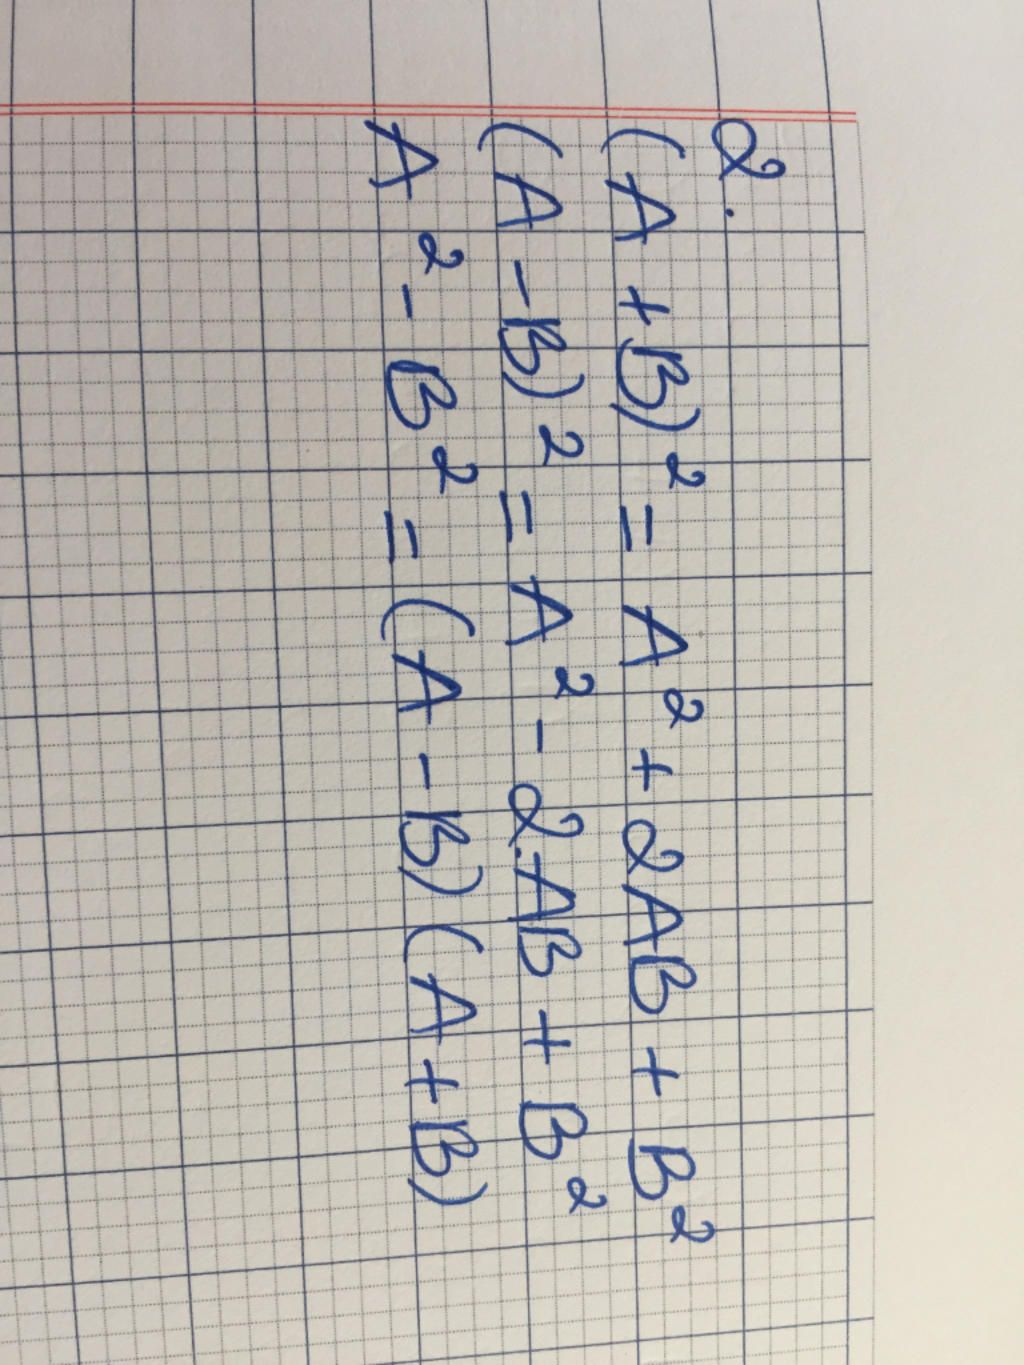 2.
(A + B)² = A² + 2AB + B²
(A - B)² = A² - 2.AB + B²
A² - B² = (A - B)(A + B)